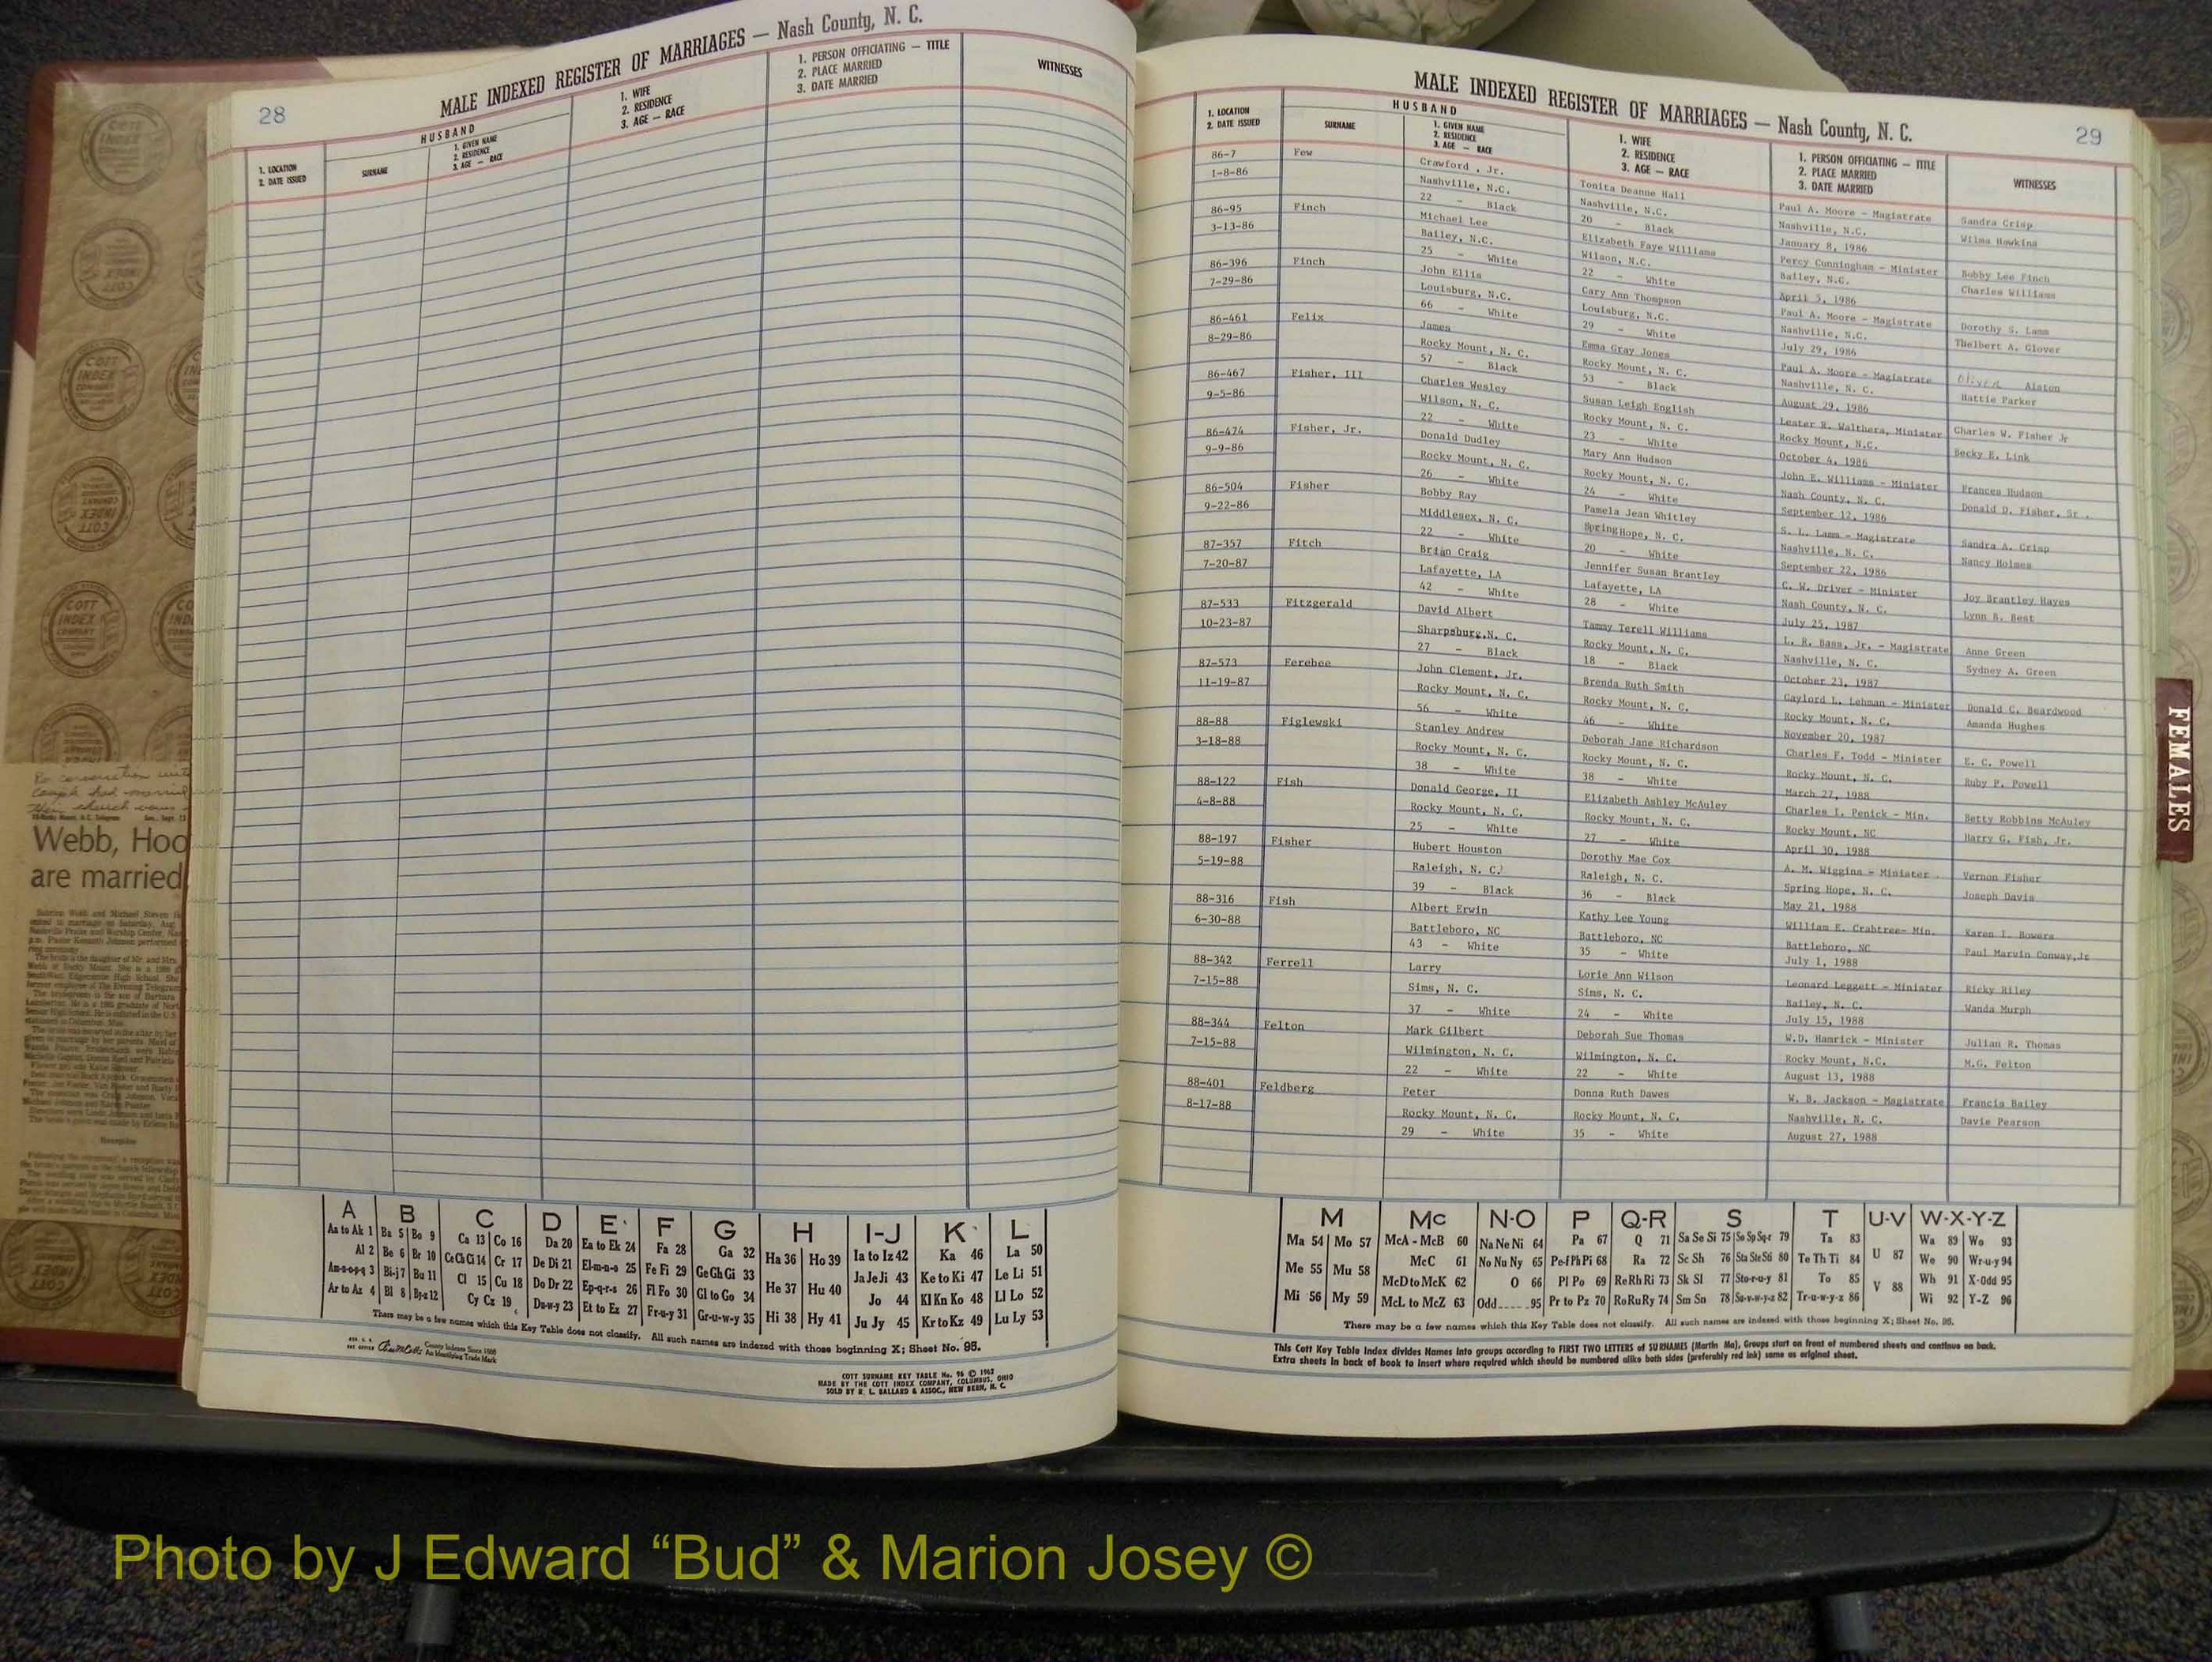 28
MALE INDEXED REGISTER OF MARRIAGES — Nash County, N. C.
1. LOCATION
2. DATE ISSUED
HUSBAND
SURNAME
1. GIVEN NAME
2. RESIDENCE
3. AGE — RACE
1. WIFE
2. RESIDENCE
3. AGE — RACE
1. PERSON OFFICIATING — TITLE
2. PLACE MARRIED
3. DATE MARRIED
WITNESSES
Webb, Hoo
are married
A B C D E F G H I-J K L
Aa to Ak 1 Ba 5 Bo 9 Ca 13 Co 16 Da 20 Ea to Ek 24 Fa 28 Ga 32 Ha 36 Ho 39 Ia to Iz 42 Ka 46 La 50
Al 2 Be 6 Br 10 Ce Ch Ci 14 Cr 17 De Di 21 El-m-n-o 25 Fe Fi 29 Ge Gh Gi 33 He 37 Hu 40 Ja Je Ji 43 Ke to Ki 47 Le Li 51
Am-n-o-p-q 3 Bi-j 7 Bu 11 Cl 15 Cu 18 Do Dr 22 Ep-q-r-s 26 Fl Fo 30 Gl to Go 34 Hi 38 Hy 41 Jo 44 Kl Kn Ko 48 Ll Lo 52
Ar to Az 4 Bl 8 By-z 12 Cy Cz 19 Du-w-y 23 Et to Ez 27 Fr-u-y 31 Gr-u-w-y 35 Ju Jy 45 Kr to Kz 49 Lu Ly 53
There may be a few names which this Key Table does not classify. All such names are indexed with those beginning X; Sheet No. 95.
County Indexes Since 1888
An Identifying Trade Mark
COTT SURNAME KEY TABLE No. 96 © 1962
MADE BY THE COTT INDEX COMPANY, COLUMBUS, OHIO
SOLD BY R. L. BALLARD & ASSOC., NEW BERN, N. C.
MALE INDEXED REGISTER OF MARRIAGES — Nash County, N. C.
29
1. LOCATION
2. DATE ISSUED
HUSBAND
SURNAME
1. GIVEN NAME
2. RESIDENCE
3. AGE — RACE
1. WIFE
2. RESIDENCE
3. AGE — RACE
1. PERSON OFFICIATING — TITLE
2. PLACE MARRIED
3. DATE MARRIED
WITNESSES
86-7 Few Crawford , Jr. Tonita Deanne Hall Paul A. Moore - Magistrate Sandra Crisp
1-8-86 Nashville, N.C. Nashville, N.C. Nashville, N.C. Wilma Hawkins
22 - Black 20 - Black January 8, 1986
86-95 Finch Michael Lee Elizabeth Faye Williams Percy Cunningham - Minister Bobby Lee Finch
3-13-86 Bailey, N.C. Wilson, N.C. Bailey, N.C. Charles Williams
25 - White 22 - White April 5, 1986
86-396 Finch John Ellis Cary Ann Thompson Paul A. Moore - Magistrate Dorothy S. Lamm
7-29-86 Louisburg, N.C. Louisburg, N.C. Nashville, N.C. Thelbert A. Glover
66 - White 29 - White July 29, 1986
86-461 Felix James Emma Gray Jones Paul A. Moore - Magistrate Alston
8-29-86 Rocky Mount, N. C. Rocky Mount, N. C. Nashville, N. C. Hattie Parker
57 - Black 53 - Black August 29, 1986
86-467 Fisher, III Charles Wesley Susan Leigh English Lester R. Walthers, Minister Charles W. Fisher Jr
9-5-86 Wilson, N. C. Rocky Mount, N. C. Rocky Mount, N.C. Becky E. Link
22 - White 23 - White October 4, 1986
86-474 Fisher, Jr. Donald Dudley Mary Ann Hudson John E. Williams - Minister Frances Hudson
9-9-86 Rocky Mount, N. C. Rocky Mount, N. C. Nash County, N. C. Donald D. Fisher, Sr.
26 - White 24 - White September 12, 1986
86-504 Fisher Bobby Ray Pamela Jean Whitley S. L. Lamm - Magistrate Sandra A. Crisp
9-22-86 Middlesex, N. C. Spring Hope, N. C. Nashville, N. C. Nancy Holmes
22 - White 20 - White September 22, 1986
87-357 Fitch Brian Craig Jennifer Susan Brantley C. W. Driver - Minister Joy Brantley Hayes
7-20-87 Lafayette, LA Lafayette, LA Nash County, N. C. Lynn B. Best
42 - White 28 - White July 25, 1987
87-533 Fitzgerald David Albert Tammy Terell Williams L. R. Bass, Jr. - Magistrate Anne Green
10-23-87 Sharpsburg,N. C. Rocky Mount, N. C. Nashville, N. C. Sydney A. Green
27 - Black 18 - Black October 23, 1987
87-573 Ferebee John Clement, Jr. Brenda Ruth Smith Gaylord L. Lehman - Minister Donald C. Beardwood
11-19-87 Rocky Mount, N. C. Rocky Mount, N. C. Rocky Mount, N. C. Amanda Hughes
56 - White 46 - White November 20, 1987
88-88 Figlewski Stanley Andrew Deborah Jane Richardson Charles F. Todd - Minister E. C. Powell
3-18-88 Rocky Mount, N. C. Rocky Mount, N. C. Rocky Mount, N. C. Ruby P. Powell
38 - White 38 - White March 27, 1988
88-122 Fish Donald George, II Elizabeth Ashley McAuley Charles I. Penick - Min. Betty Robbins McAuley
4-8-88 Rocky Mount, N. C. Rocky Mount, N. C. Rocky Mount, NC Harry G. Fish, Jr.
25 - White 27 - White April 30, 1988
88-197 Fisher Hubert Houston Dorothy Mae Cox A. M. Wiggins - Minister Vernon Fisher
5-19-88 Raleigh, N. C. Raleigh, N. C. Spring Hope, N. C. Joseph Davis
39 - Black 36 - Black May 21, 1988
88-316 Fish Albert Erwin Kathy Lee Young William E. Crabtree- Min. Karen I. Bowers
6-30-88 Battleboro, NC Battleboro, NC Battleboro, NC Paul Marvin Conway,Jr
43 - White 35 - White July 1, 1988
88-342 Ferrell Larry Lorie Ann Wilson Leonard Leggett - Minister Ricky Riley
7-15-88 Sims, N. C. Sims, N. C. Bailey, N. C. Wanda Murph
37 - White 24 - White July 15, 1988
88-344 Felton Mark Gilbert Deborah Sue Thomas W.D. Hamrick - Minister Julian R. Thomas
7-15-88 Wilmington, N. C. Wilmington, N. C. Rocky Mount, N.C. M.G. Felton
22 - White 22 - White August 13, 1988
88-401 Feldberg Peter Donna Ruth Dawes W. B. Jackson - Magistrate Francis Bailey
8-17-88 Rocky Mount, N. C. Rocky Mount, N. C. Nashville, N. C. Davie Pearson
29 - White 35 - White August 27, 1988
FEMALES
M Mc N-O P Q-R S T U-V W-X-Y-Z
Ma 54 Mo 57 McA - McB 60 Na Ne Ni 64 Pa 67 Q 71 Sa Se Si 75 So Sp Sq-r 79 Ta 83 U 87 Wa 89 Wo 93
Me 55 Mu 58 McC 61 No Nu Ny 65 Pe-f Ph Pi 68 Ra 72 Sc Sh 76 Sta Ste Sti 80 Te Th Ti 84 V 88 We 90 Wr-u-y 94
Mi 56 My 59 McD to McK 62 O 66 Pl Po 69 Re Rh Ri 73 Sk Sl 77 Sto-r-u-y 81 To 85 Wh 91 X-Odd 95
McL to McZ 63 Odd 95 Pr to Pz 70 Ro Ru Ry 74 Sm Sn 78 Su-v-w-y-z 82 Tr-u-w-y-z 86 Wi 92 Y-Z 96
There may be a few names which this Key Table does not classify. All such names are indexed with those beginning X; Sheet No. 95.
This Cott Key Table Index divides Names into groups according to FIRST TWO LETTERS of SURNAMES (Martin Ma), Groups start on front of numbered sheets and continue on back.
Extra sheets in back of book to insert where required which should be numbered alike both sides (preferably red ink) same as original sheet.
Photo by J Edward “Bud” & Marion Josey ©